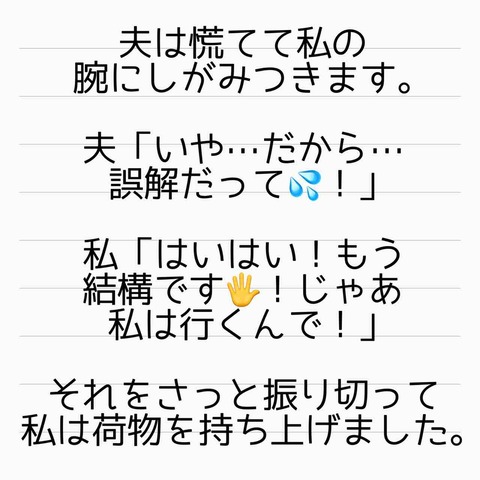 夫は慌てて私の
腕にしがみつきます。
夫「いや…だから…
誤解だって💦！」
私「はいはい！もう
結構です🖐！じゃあ
私は行くんで！」
それをさっと振り切って
私は荷物を持ち上げました。